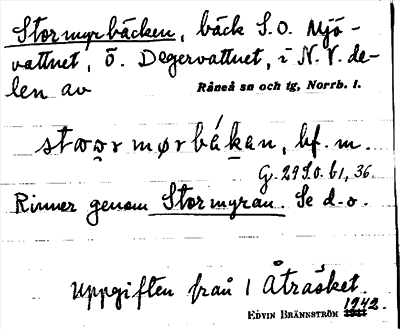 Stormyrbäcken, bäck S.O. Mjö-
vattnet, Ö. Degervattnet, i N.V. de-
len av Råneå sn och tg, Norrb. l.
bf. m.
G. 29 S.O. b1, 36.
Rinner genom Stormyran. Se d.o.
Uppgiften från 1 Åträsket.
EDVIN BRÄNNSTRÖM 1942.